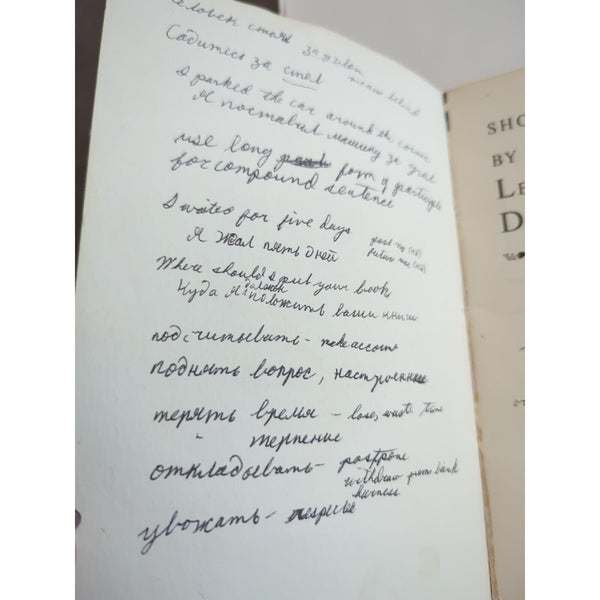 человек стоял за
Садитесь за стол
I parked the car around the corner
Я поставил машину за угол
use long form of participle
for compound sentence
I waited for five days
Я ждал пять дней
Where should I put your books
Куда Я должен положить ваши книги
подсчитывать - make account
поднять вопрос, настроение
терять время - lose, waste time
" терпение
откладывать - postpone
withdraw from bank
harness
уважать - respect
SHO
BY
LE
D